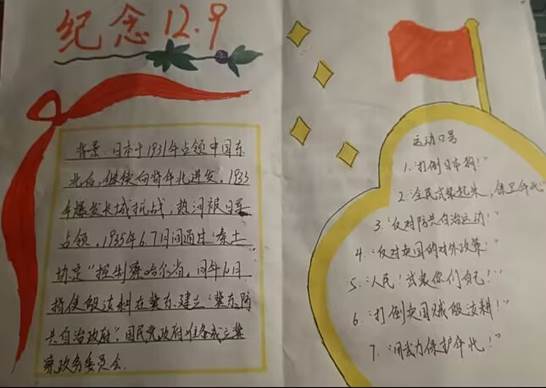 纪念12.9
背景:日本于1931年占领中国东
北后,继续向华北进发,1933
年爆发长城抗战,热河被日军
占领,1935年6.7月间通过"秦土
协定"控制察哈尔省,同年6月
指使殷汝耕在冀东建立"冀东防
共自治政府",国民党政府准备成立冀
察政务委员会.
运动口号
1."打倒日本狗!"
2."全民武装起来,保卫华北!"
3."反对防共自治运动!"
4."反对卖国的对外政策!"
5."人民!武装你们自己!"
6."打倒卖国贼殷汝耕!"
7."用武力保护华北!"